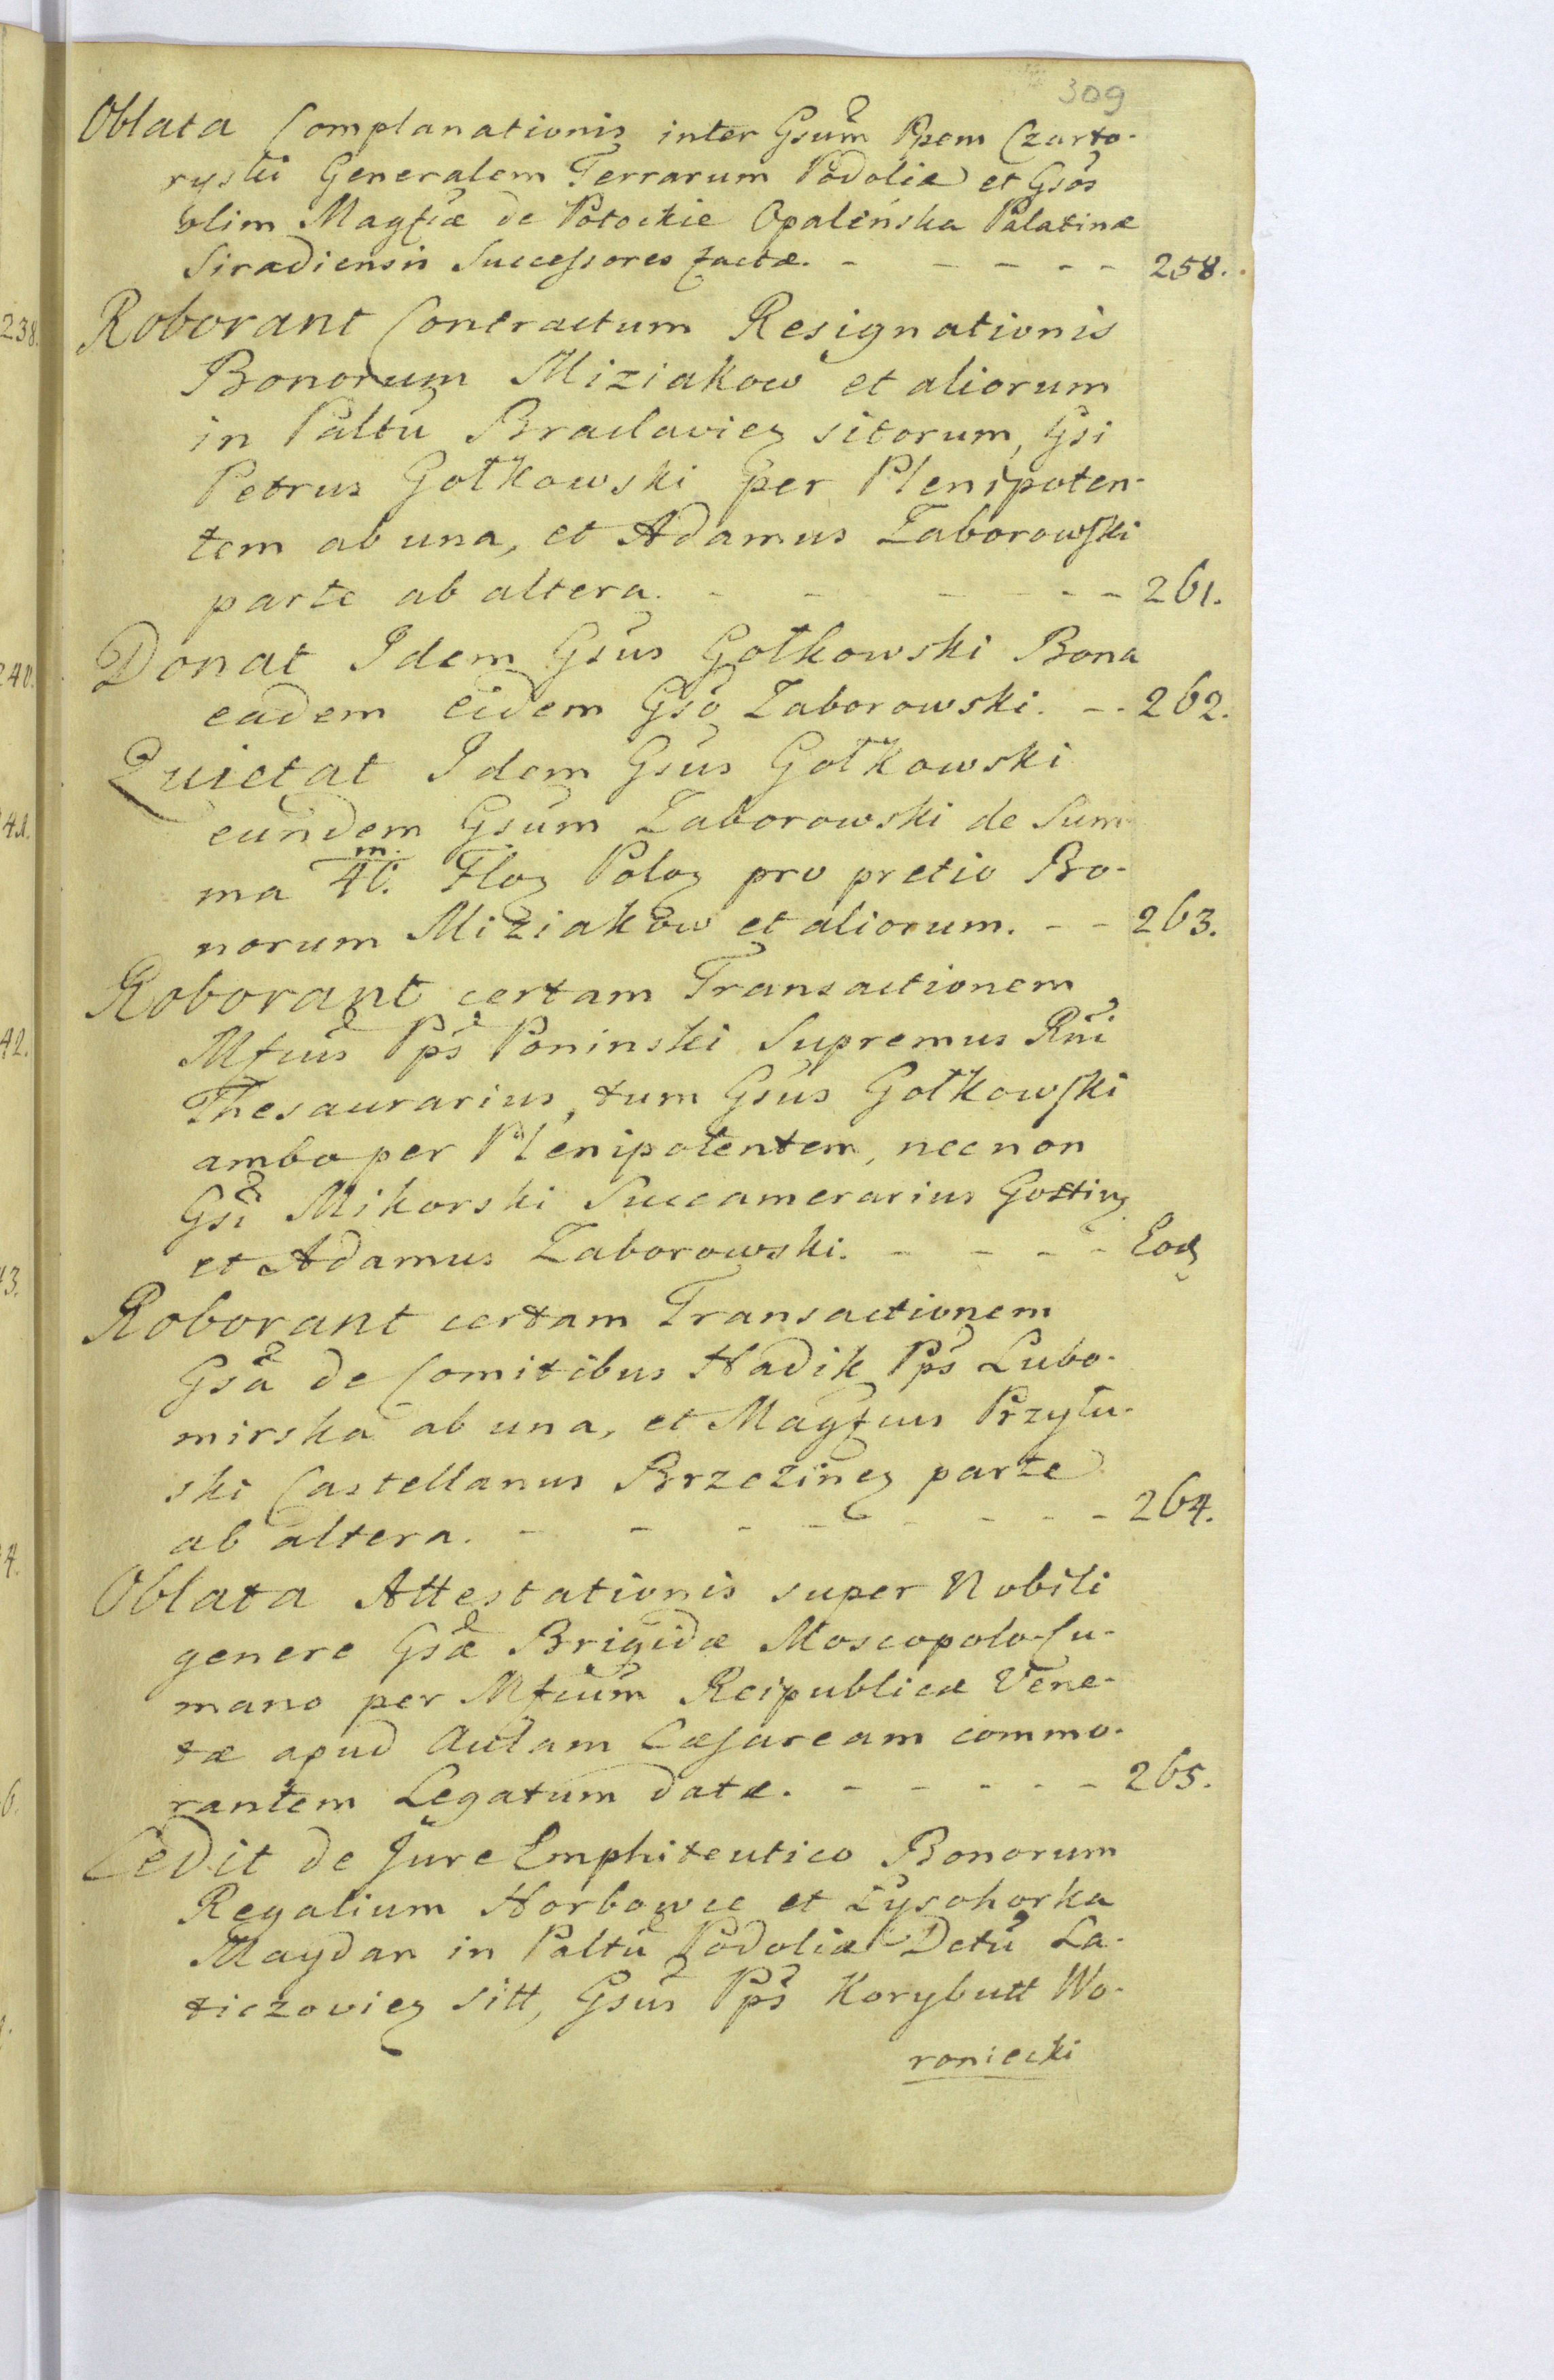 309
Oblata Complanationis inter Gsum Ppem Czarto-
ryski Generalem Terrarum Podoliæ et Gsos
olim Magfcæ de Potockie Opalińska Palatinæ
Siradiensis Successores factæ. - - - - - 258.
Roborant Contractum Resignationis
Bonorum Miziakow et aliorum
in Paltu Braclavien sitorum, Gsi
Petrus Gołkowski per Plenipoten-
tem ab una, et Adamus Zaborowski
parte ab altera. - - - - - - 261.
Donat Idem Gsus Gołkowski Bona
eadem eidem Gso Zaborowski. - - 262.
Quietat Idem Gsus Gołkowski
eundem Gsum Zaborowski de Sum-
ma 40. m. Flor Polor pro pretio Bo-
norum Miziakow et aliorum. - - 263.
Roborant certam Transactionem
Mfcus Pps Poninski Supremus Rni
Thesaurarius, tum Gsus Gołkowski
ambo per Plenipotentem, necnon
Gsi Mikorski Succamerarius Gostin
et Adamus Zaborowski. - - - - Eod
Roborant certam Transactionem
Gsa de Comitibus Hadik Pps Lubo-
mirska ab una, et Magfcus Przyłu-
ski Castellanus Brzezinen parte
ab altera. - - - - - - - 264.
Oblata Attestationis super Nobili
genere Gsæ Brigidæ Moscopolo-Cu-
mano per Mfcum Reipublicæ Vene-
tæ apud Aulam Cæsaream commo-
rantem Legatum datæ. - - - - - 265.
Cedit de Jure Emphiteutico Bonorum
Regalium Horbowce et Łysohorka
Maydan in Paltu Podoliæ Dctu La-
ticzovien sitt, Gsus Pps Korybutt Wo-
roniecki
238.
240.
41.
42.
43.
4.
6.